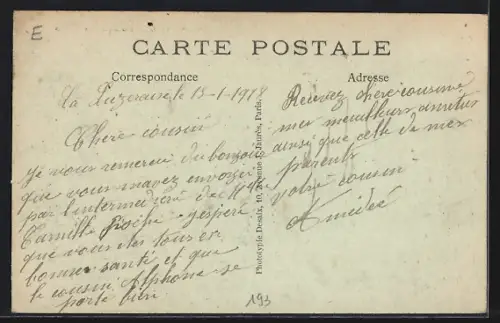 E
CARTE POSTALE
Correspondance
Adresse
La 15-1-1918
Chere cousine
Je vous remercie du bonjour
que vous mavez envoyer
par l'intermédiaire de Mme
Camille j'espère
que vous êtes tous en
bonne santé et que
le cousin Alphonse se
porte bien
Phototypie Desaix, 10, Avenue J. Jaurès, Paris.
Recevez chère cousine
mes meilleurs amitiés
ainsi que celle de mes
parents
votre cousin
Amédée
193